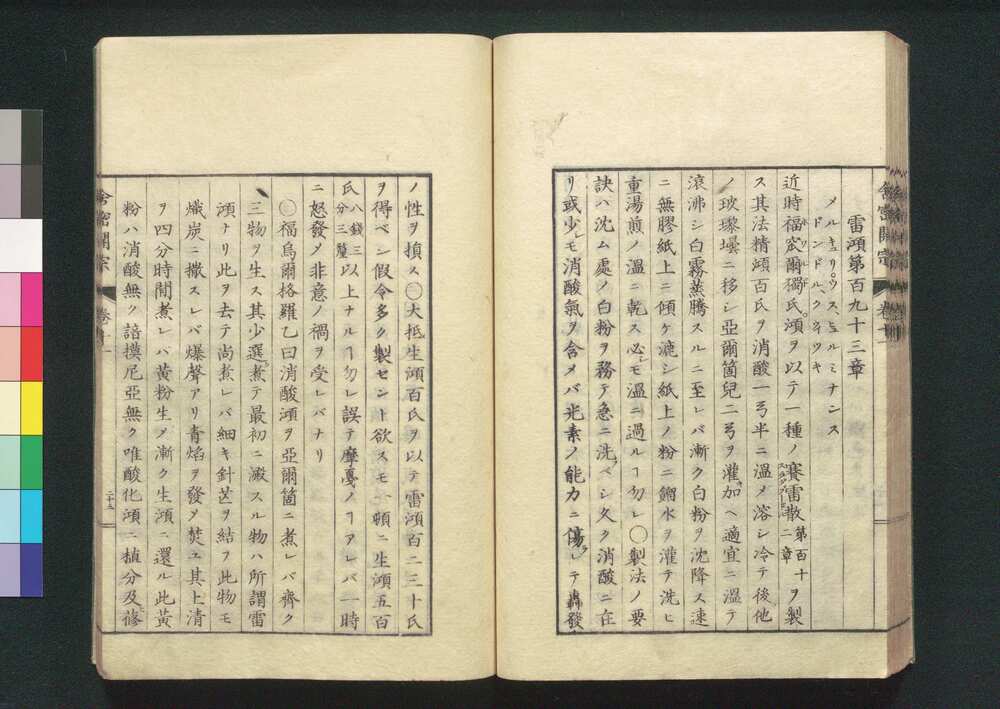 雷澒第百九十三章
メルキュリウス、ヒュルミナンス
ドンドルクウキ
近時福窊爾獨氏澒ヲ以テ一種ノ賽雷散第百十二章ヲ製
ス其法精澒百氏ヲ消酸一弓半ニ溫メ溶シ冷テ後他
ノ玻瓈壜ニ移シ亞爾箇兒二弓ヲ灌加ヘ適宜ニ溫テ
滾沸シ白霧蒸騰スルニ至レバ漸ク白粉ヲ沈降ス速
ニ無膠紙上ニ傾ケ漉シ紙上ノ粉ニ餾水ヲ灌テ洗ヒ
重湯煎ノ溫ニ乾ス必モ溫ニ過ルヿ勿レ〇製法ノ要
訣ハ沈ム處ノ白粉ヲ務テ急ニ洗ベシ久ク消酸ニ在
リ或少モ消酸氣ヲ含メバ光素ノ能力ニ傷レテ轟發
ノ性ヲ損ス〇大抵生澒百氏ヲ以テ雷澒百二三十氏
ヲ得ベシ假令多ク製セント欲スモ一頓ニ生澒五百
氏八錢三分三釐以上ナルヿ勿レ誤テ摩戞ノヿアレバ一時
ニ怒發メ非意ノ禍ヲ受レバナリ
〇福烏爾格羅乙曰消酸澒ヲ亞爾箇ニ煮レバ齊ク
三物ヲ生ス其少選煮テ最初ニ澱スル物ハ所謂雷
澒ナリ此ヲ去テ尚煮レバ細キ針芒ヲ結フ此物モ
熾炭ニ撒スレバ爆聲アリ青焰ヲ發メ焚ユ其上清
ヲ四分時間煮レバ黃粉生メ漸ク生澒ニ還ル此黃
粉ハ消酸無ク諳摸尼亞無ク唯酸化澒ニ植分及蓚
舍密開宗
卷十一
舍密開宗
卷十一